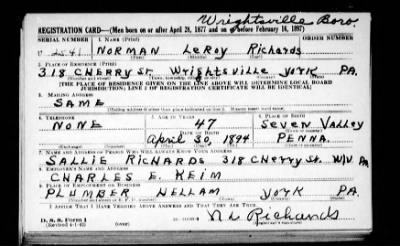 Wrightsville Boro.
REGISTRATION CARD—(Men born on or after April 28, 1877 and on or before February 16, 1897)
SERIAL NUMBER 1. NAME (Print) ORDER NUMBER
U 2541 NORMAN LeRoy Richards
2. PLACE OF RESIDENCE (Print)
318 CHERRY St. Wrightsville York PA.
[THE PLACE OF RESIDENCE GIVEN ON THE LINE ABOVE WILL DETERMINE LOCAL BOARD
JURISDICTION; LINE 2 OF REGISTRATION CERTIFICATE WILL BE IDENTICAL]
3. MAILING ADDRESS
SAME
4. TELEPHONE 5. AGE IN YEARS 6. PLACE OF BIRTH
NONE 47 Seven Valley
DATE OF BIRTH
April 30, 1894 PENNA.
7. NAME AND ADDRESS OF PERSON WHO WILL ALWAYS KNOW YOUR ADDRESS
SALLIE RICHARDS 318 Cherry St. W/V Pa
8. EMPLOYER'S NAME AND ADDRESS
CHARLES E. KEIM
9. PLACE OF EMPLOYMENT OR BUSINESS
PLUMBER HELLAM York PA.
I AFFIRM THAT I HAVE VERIFIED ABOVE ANSWERS AND THAT THEY ARE TRUE.
D. S. S. Form 1
(Revised 4-1-42)
N L Richards